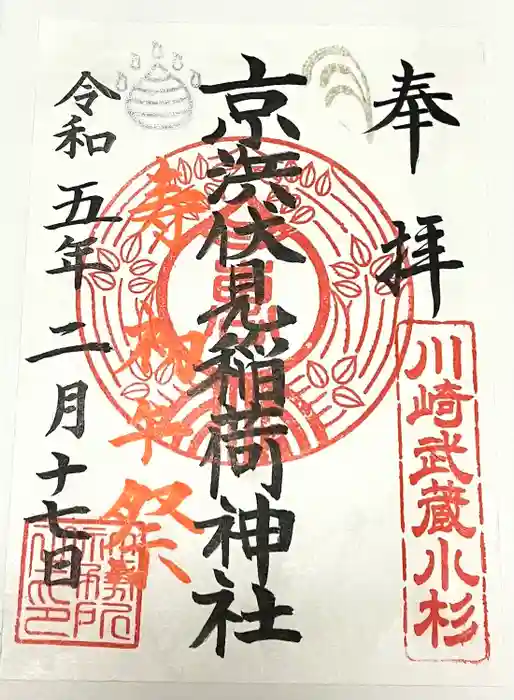 奉拝
川崎武蔵小杉
京浜伏見稲荷神社
令和五年二月十七日